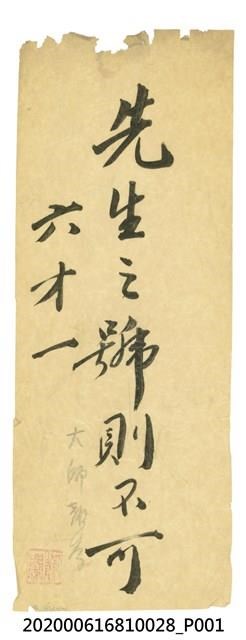 先生之號則不可
六才一
大師
202000616810028_P001